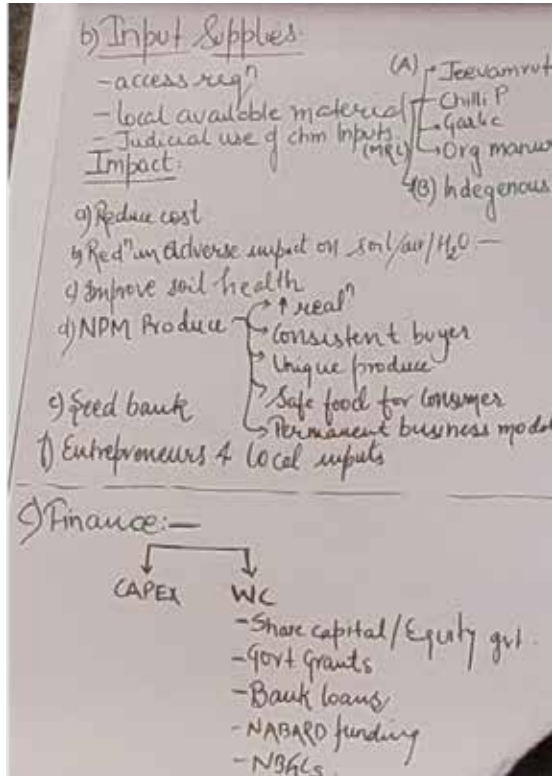 b) Input Supplies
- access reqⁿ
- local available material
- Judicial use of chm Inputs (MRL)
(A) Jeevamrut
Chilli P
Garlic
Org manur
(B) Indegenous
Impact:
a) Reduce cost
b) Redⁿ in Adverse impact on soil/air/H₂O —
c) Improve soil health
d) NPM Produce
↑ realⁿ
Consistent buyer
Unique produce
Safe food for consumer
Permanent business model
e) Seed bank
f) Entrepreneurs 4 local inputs
c) Finance:—
CAPEX WC
- Share capital/Equity gvt.
- Govt Grants
- Bank loans
- NABARD funding